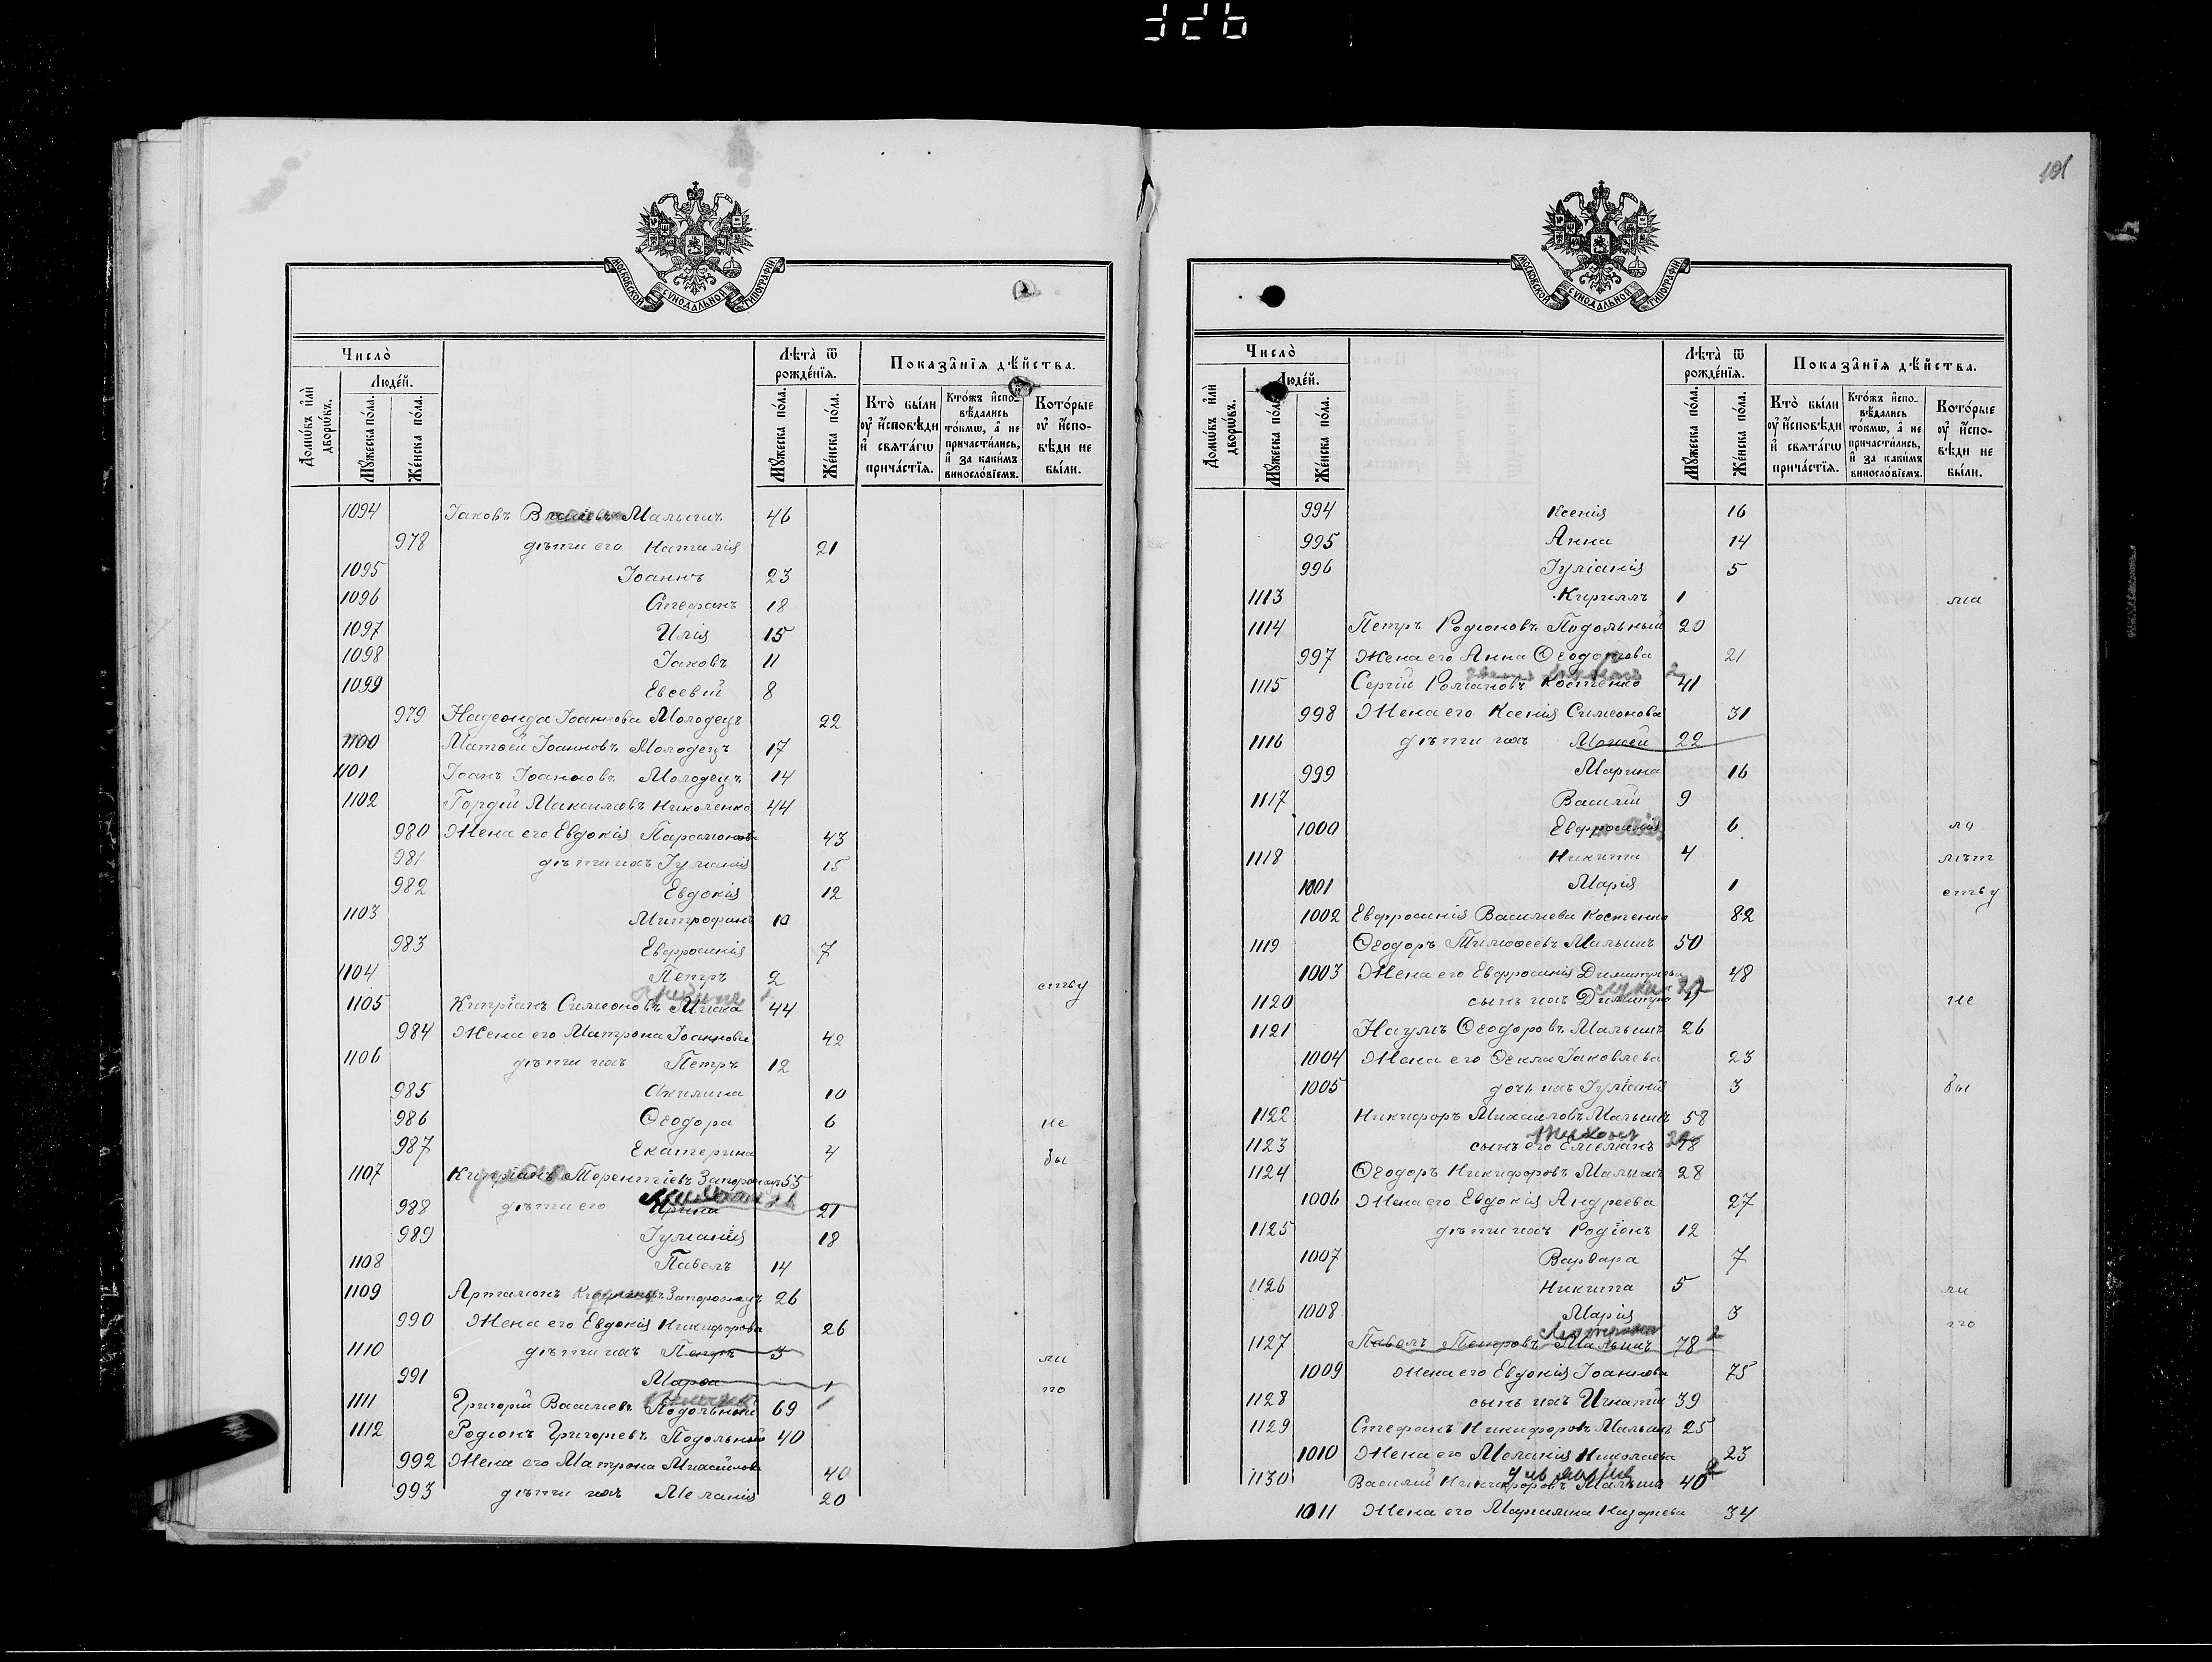 326
МОСКОВСКОЙ СѴНОДАЛЬНОЙ ТИПОГРАФІИ
Число̀
Люде́й.
Домѡ́въ и҆лѝ дворѡ́въ.
Мꙋ́жеска по́ла.
Же́нска по́ла.
Лѣ́та ѿ рожде́нїѧ.
Мꙋ́жеска по́ла.
Же́нска по́ла.
Показа̑нїѧ дѣ́йства.
Кто̀ бы́ли оу҆ и҆сповѣди и҆ свѧта́гѡ прича́стїѧ.
Кто́жъ и҆сповѣ́дались то́кмѡ, а҆ не причасти́лись, и҆ за каки́мъ винослові́емъ.
Кото́рые оу҆ и҆сповѣди не бы́ли.
1094 Іаковъ Малышъ 46
978 дѣти его Наталія 21
1095 Іоаннъ 23
1096 Стефанъ 18
1097 Илія 15
1098 Іаковъ 11
1099 Евсевій 8
979 Надежда Іоаннова Молодецъ 22
1100 Матѳей Іоанновъ Молодецъ 17
1101 Іоанъ Іоанновъ Молодецъ 14
1102 Гордій Максимовъ Николенко 44
980 Жена его Евдокія Парамонова 43
981 дѣти ихъ Іуліанія 15
982 Евдокія 12
1103 Митрофанъ 10
983 Евфросинія 7
1104 Петръ 2 ству
1105 Кипріанъ Симеоновъ Миска 44
984 Жена его Матрона Іоаннова 42
1106 дѣти ихъ Петръ 12
985 Акилина 10
986 Ѳеодора 6 не
987 Екатерина 4 бы
1107 Кипріанъ Терентіевъ Запорожецъ 55
988 дѣти его Ирина 21
989 Іуліанія 18
1108 Павелъ 14
1109 Артамонъ Запорожецъ 26
990 Жена его Евдокія Никифорова 26
1110 дѣти ихъ Петръ 3 ли
991 Марѳа 1 по
1111 Григорій Василіевъ Подольный 69
1112 Родіонъ Григоріевъ Подольный 40
992 Жена его Матрона Михаилова 40
993 дѣти ихъ Меланія 20
101
МОСКОВСКОЙ СѴНОДАЛЬНОЙ ТИПОГРАФІИ
Число̀
Люде́й.
Домѡ́въ и҆лѝ дворѡ́въ.
Мꙋ́жеска по́ла.
Же́нска по́ла.
Лѣ́та ѿ рожде́нїѧ.
Мꙋ́жеска по́ла.
Же́нска по́ла.
Показа̑нїѧ дѣ́йства.
Кто̀ бы́ли оу҆ и҆сповѣди и҆ свѧта́гѡ прича́стїѧ.
Кто́жъ и҆сповѣ́дались то́кмѡ, а҆ не причасти́лись, и҆ за каки́мъ винослові́емъ.
Кото́рые оу҆ и҆сповѣди не бы́ли.
994 Ксенія 16
995 Анна 14
996 Іуліанія 5
1113 Кириллъ 1 ма
1114 Петръ Родіоновъ Подольный 20
997 Жена его Анна Ѳеодотова 21
1115 Сергій Романовъ Костенко 41
998 Жена его Ксенія Симеонова 31
1116 дѣти ихъ Моисей 22
999 Марина 16
1117 Василій 9
1000 Евфросинія 6 ло
1118 Никита 4 лѣт
1001 Марія 1 ству
1002 Евфросинія Василіева Костенко 82
1119 Ѳеодоръ Тимоѳеевъ Малышъ 50
1003 Жена его Евфросинія Димитріева 48
1120 сынъ ихъ Димитрій не
1121 Наумъ Ѳеодоровъ Малышъ 26
1004 Жена его Ѳекла Іаковлева 23
1005 дочь ихъ Іуліанія 3 бы
1122 Никифоръ Михаиловъ Малышъ 58
Тихонъ
1123 сынъ его Емеліанъ 18
1124 Ѳеодоръ Никифоровъ Малышъ 28
1006 Жена его Евдокія Андреева 27
1125 дѣти ихъ Родіонъ 12
1007 Варвара 7
1126 Никита 5 ли
1008 Марія 3 по
1127 Павелъ Петровъ Малышъ 78
1009 Жена его Евдокія Іоаннова 75
1128 сынъ ихъ Игнатій 39
1129 Стефанъ Никифоровъ Малышъ 25
1010 Жена его Меланія Николаева 23
1130 Василій Никифоровъ Малышъ 40
1011 Жена его Маріамна Назаріева 34